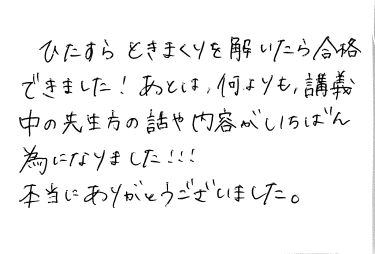 ひたすらときまくりを解いたら合格
できました！あとは、何よりも、講義
中の先生方の話や内容がいちばん
為になりました!!!
本当にありがとうございました。